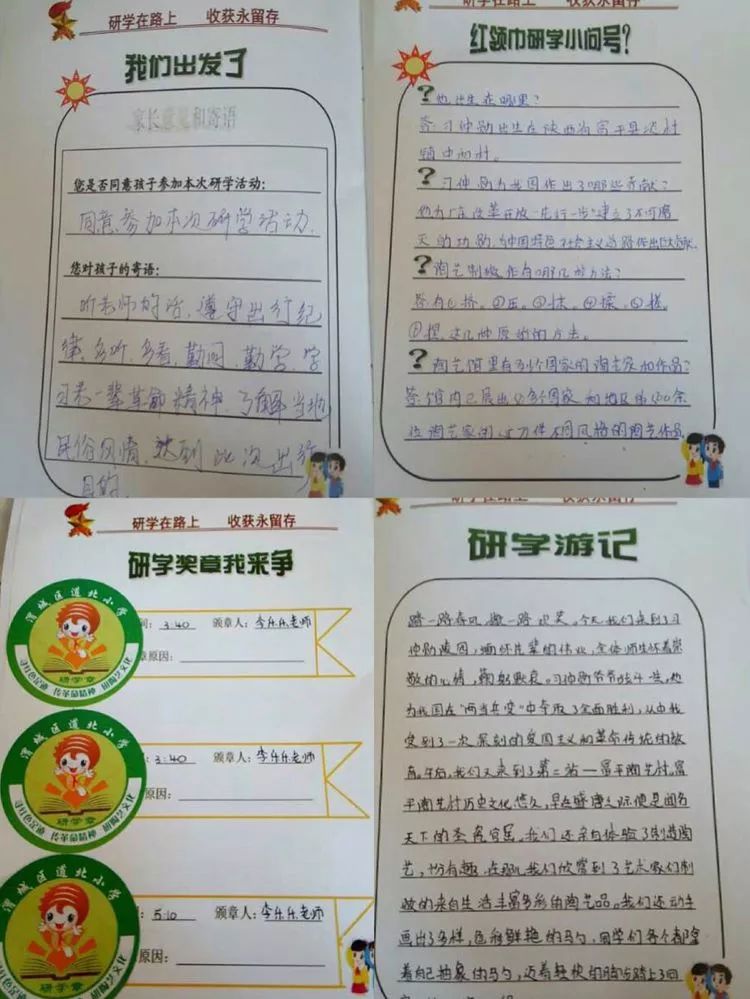 研学在路上 收获永留存
我们出发了
家长意见和寄语
您是否同意孩子参加本次研学活动:
同意参加本次研学活动.
您对孩子的寄语:
听老师的话,遵守出行纪
律,多听,多看,勤问,勤学,学
习老一辈革命精神,了解当地
民俗风情,达到此次出行
目的.
红领巾研学小问号?
?他出生在哪里?
答:习仲勋出生在陕西省富平县淡村
镇中和村。
?习仲勋为我国作出了哪些贡献?
他为广东改革开放“先行一步”建立了不可磨
灭的功勋,为中国特色社会主义道路作出巨大贡献.
?陶艺制作有哪几种方法?
答有①挤.②压.③抹.④揉.⑤搓.
⑥捏.这几种原始的方法。
?陶艺馆里有多少个国家的陶艺家和作品?
答:馆内已展出 多个国家和地区的 余
位陶艺家的 万件不同风格的陶艺作品
研学在路上 收获永留存
研学奖章我来争
渭城区道北小学
研学章
寻红色足迹 传革命精神 研陶艺文化
间: 3:40 颁章人: 李乐乐老师
章原因:
渭城区道北小学
研学章
寻红色足迹 传革命精神 研陶艺文化
: 3:40 颁章人: 李乐乐老师
原因:
渭城区道北小学
研学章
: 5:10 颁章人: 李乐乐老师
原因:
研学在路上 收获永留存
研学游记
踏一路春风,撒一路欢笑。今天,我们来到了习
仲勋陵园,缅怀先辈的伟业,全体师生怀着崇
敬的心情,鞠躬默哀。习仲勋爷爷 他
为我国在“两当兵变”中夺取了全面胜利,从中我
受到了一次深刻的爱国主义和革命传统的教
育。午后,我们又来到了第二站—富平陶艺村,富
平陶艺村历史文化悠久,早在盛唐之际便是闻名
天下的 瓷官窑。我们还亲自体验了制造陶
艺,十分有趣。 我们欣赏到了艺术家们制
做的来自生活丰富多彩的陶艺品。我们还动手
画出了多样,色彩鲜艳的马勺,同学们各个都拿
着自己抽象的马勺,迈着轻快的脚步踏上了回